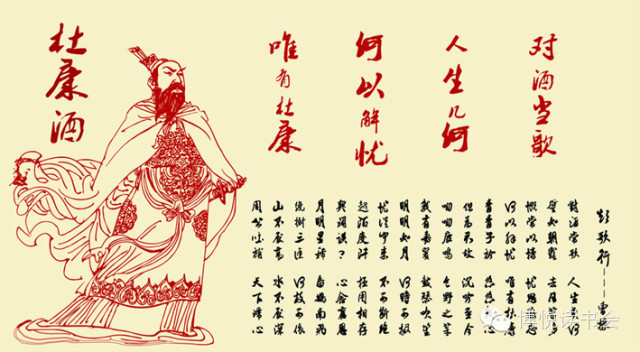 对酒当歌
人生几何
何以解忧
唯有杜康
杜康酒
短歌行---曹操
對酒當歌 人生几何
譬如朝露 去日苦多
慨当以慷 忧思
何以解忧 唯有杜康
青青子衿 悠悠
但为君故 沉吟至今
呦呦鹿鸣 食野之苹
我有嘉宾 鼓瑟吹笙
明明如月 何时可掇
忧从中来 不可断绝
越陌度阡 枉用相存
心念旧恩
月明星稀 乌鹊南飞
绕树三匝 何枝可依
山不厌高 水不厌深
周公吐哺 天下归心
博悦读书会